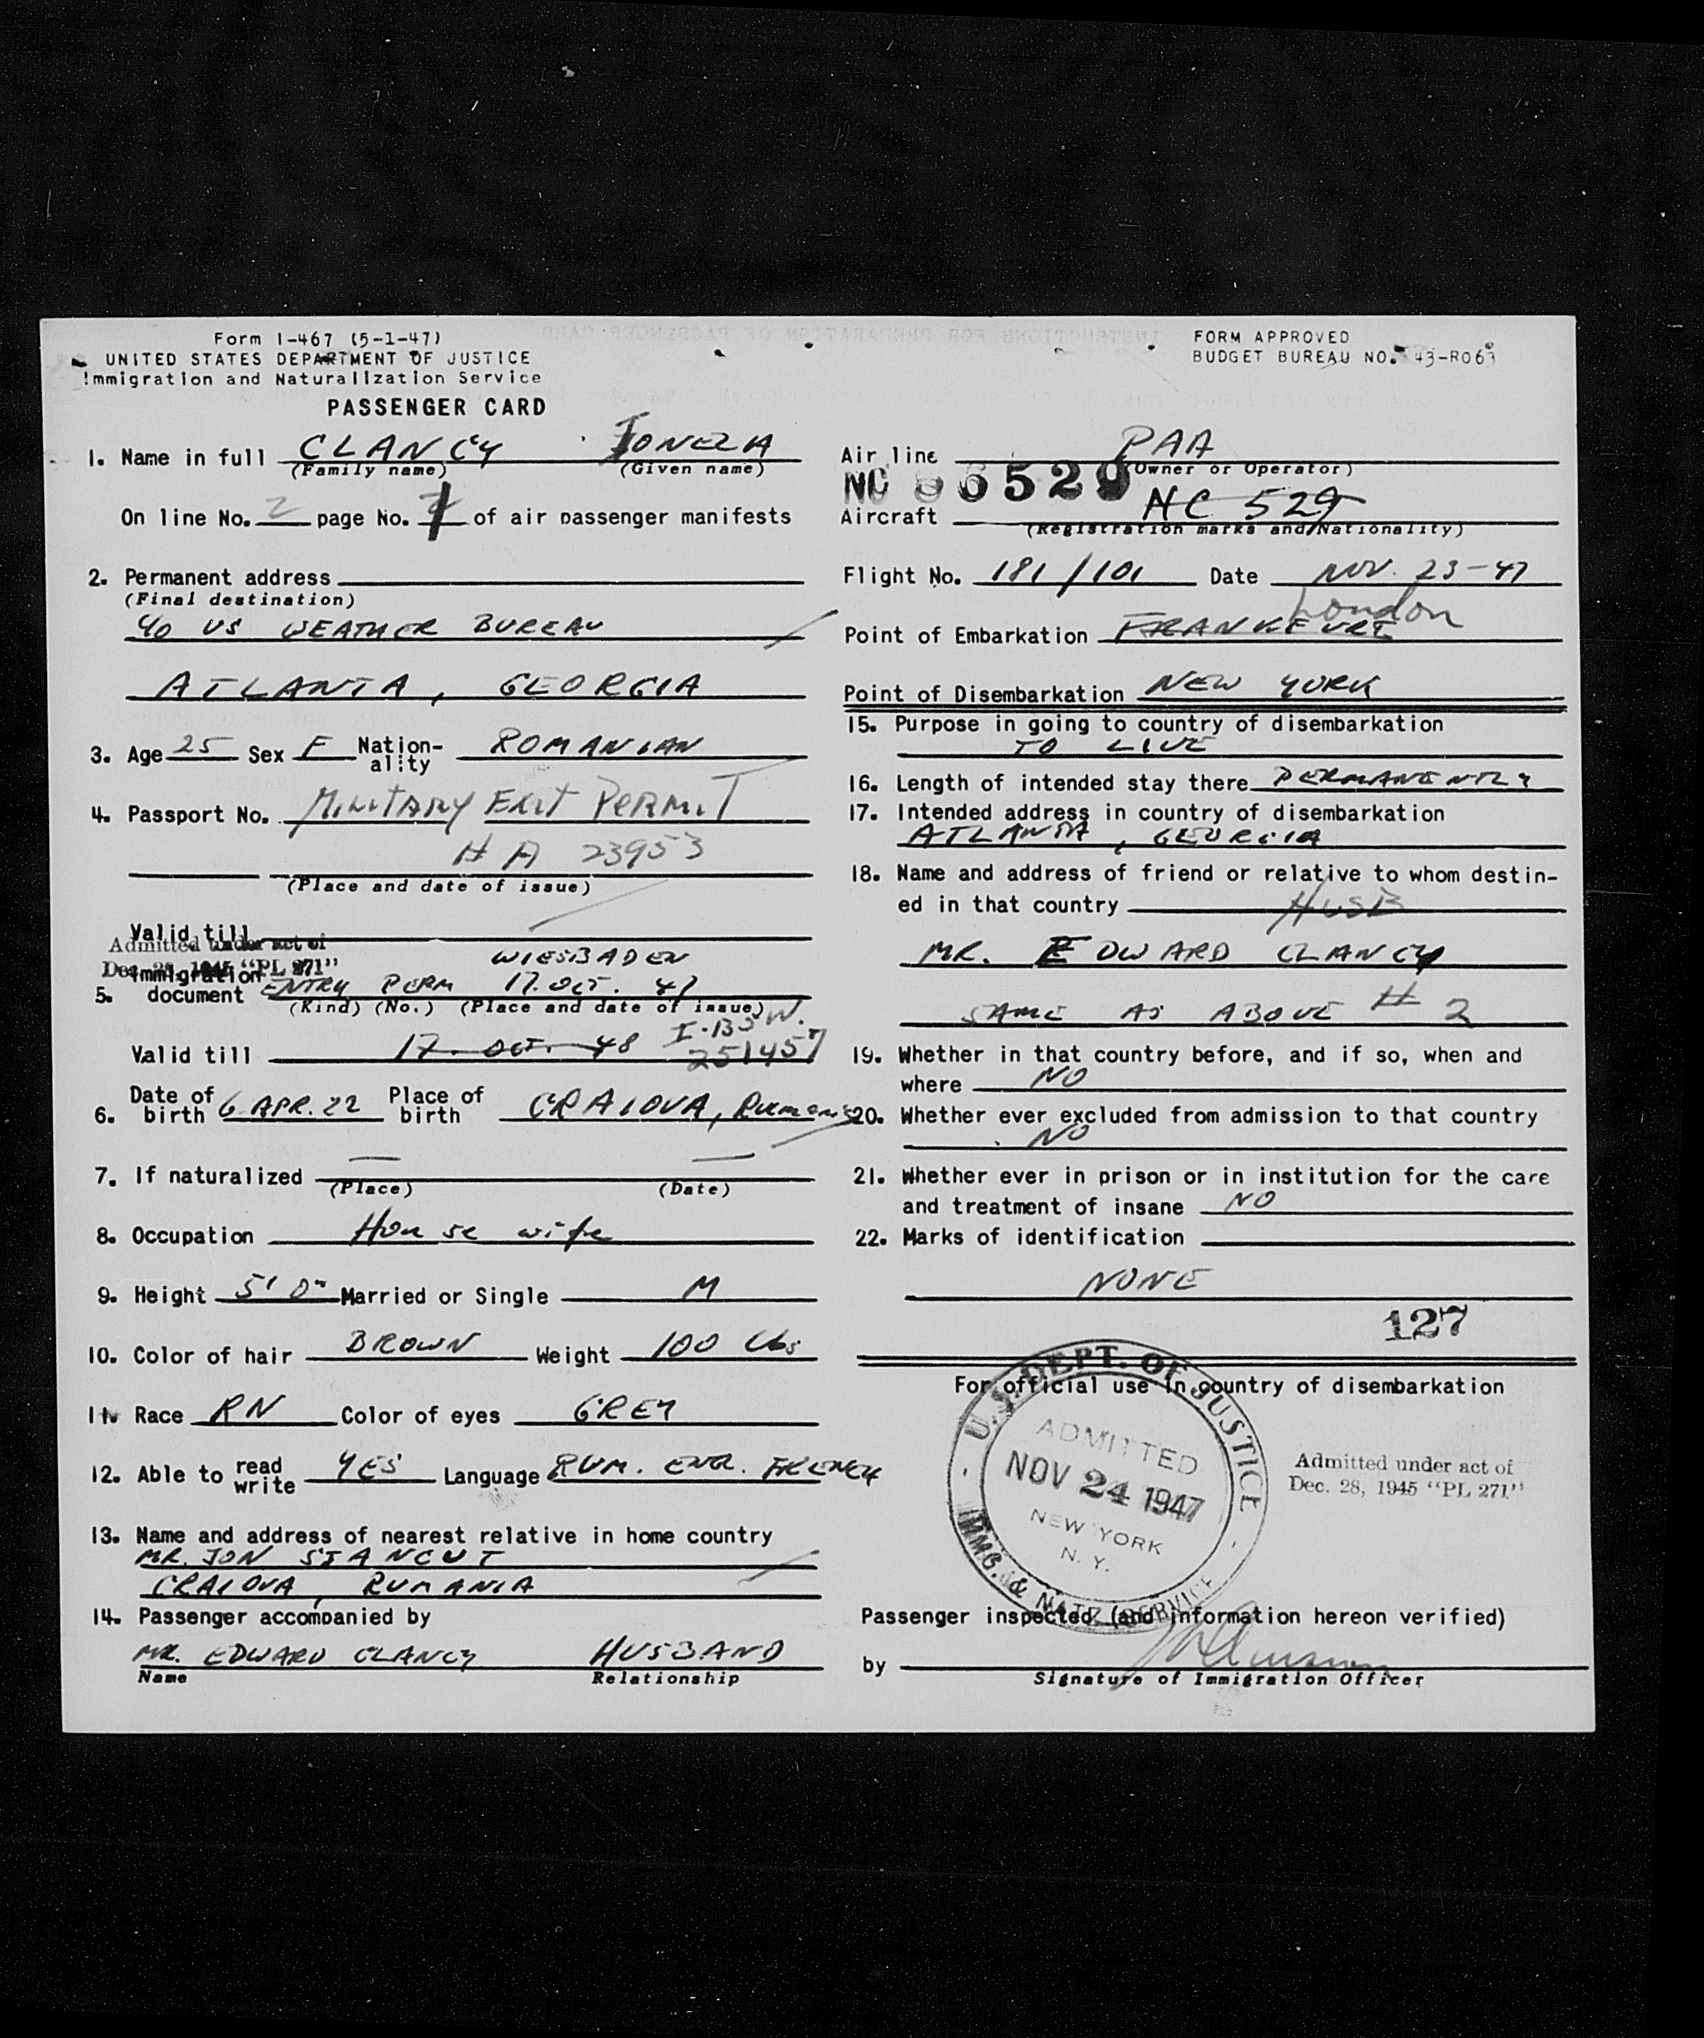 Form I-467 (5-1-47)
UNITED STATES DEPARTMENT OF JUSTICE
Immigration and Naturalization Service
PASSENGER CARD
FORM APPROVED
BUDGET BUREAU NO. 43-R063
1. Name in full CLANCY IONELA
(Family name) (Given name)
On line No. 2 page No. of air passenger manifests
2. Permanent address
(Final destination)
c/o US WEATHER BUREAU
ATLANTA, GEORGIA
3. Age 25 Sex F Nation-ality ROMANIAN
4. Passport No. MILITARY EXIT PERMIT
# A 23953
(Place and date of issue)
Valid till
Admitted under act of
Dec. 28, 1945 "PL 271"
WIESBADEN
5. Immigration document ENTRY PERM 17. OCT. 47
(Kind) (No.) (Place and date of issue)
Valid till 17. OCT. 48 I-135 W. 251457
6. Date of birth 6 APR. 22 Place of birth CRAIOVA, Rumania
7. If naturalized — —
(Place) (Date)
8. Occupation House wife
9. Height 5' 0" Married or Single M
10. Color of hair BROWN Weight 100 Lbs
11. Race RN Color of eyes GREY
12. Able to read write YES Language RUM. ENGL. FRENCH
13. Name and address of nearest relative in home country
MR. JON STANCUT
CRAIOVA, RUMANIA
14. Passenger accompanied by
MR. EDWARD CLANCY HUSBAND
Name Relationship
Air line PAA
(Owner or Operator)
NC 86529
Aircraft NC 529
(Registration marks and Nationality)
Flight No. 181/101 Date NOV. 23-47
London
Point of Embarkation FRANKFURT
Point of Disembarkation NEW YORK
15. Purpose in going to country of disembarkation
TO LIVE
16. Length of intended stay there PERMANENTLY
17. Intended address in country of disembarkation
ATLANTA, GEORGIA
18. Name and address of friend or relative to whom destin-
ed in that country HUSB
MR. EDWARD CLANCY
SAME AS ABOVE # 2
19. Whether in that country before, and if so, when and
where NO
20. Whether ever excluded from admission to that country
NO
21. Whether ever in prison or in institution for the care
and treatment of insane NO
22. Marks of identification
NONE
127
For official use in country of disembarkation
U.S. DEPT. OF JUSTICE
ADMITTED
NOV 24 1947
NEW YORK
N. Y.
IMMG. & NATZ. SERVICE
Admitted under act of
Dec. 28, 1945 "PL 271"
Passenger inspected (and information hereon verified)
by
Signature of Immigration Officer